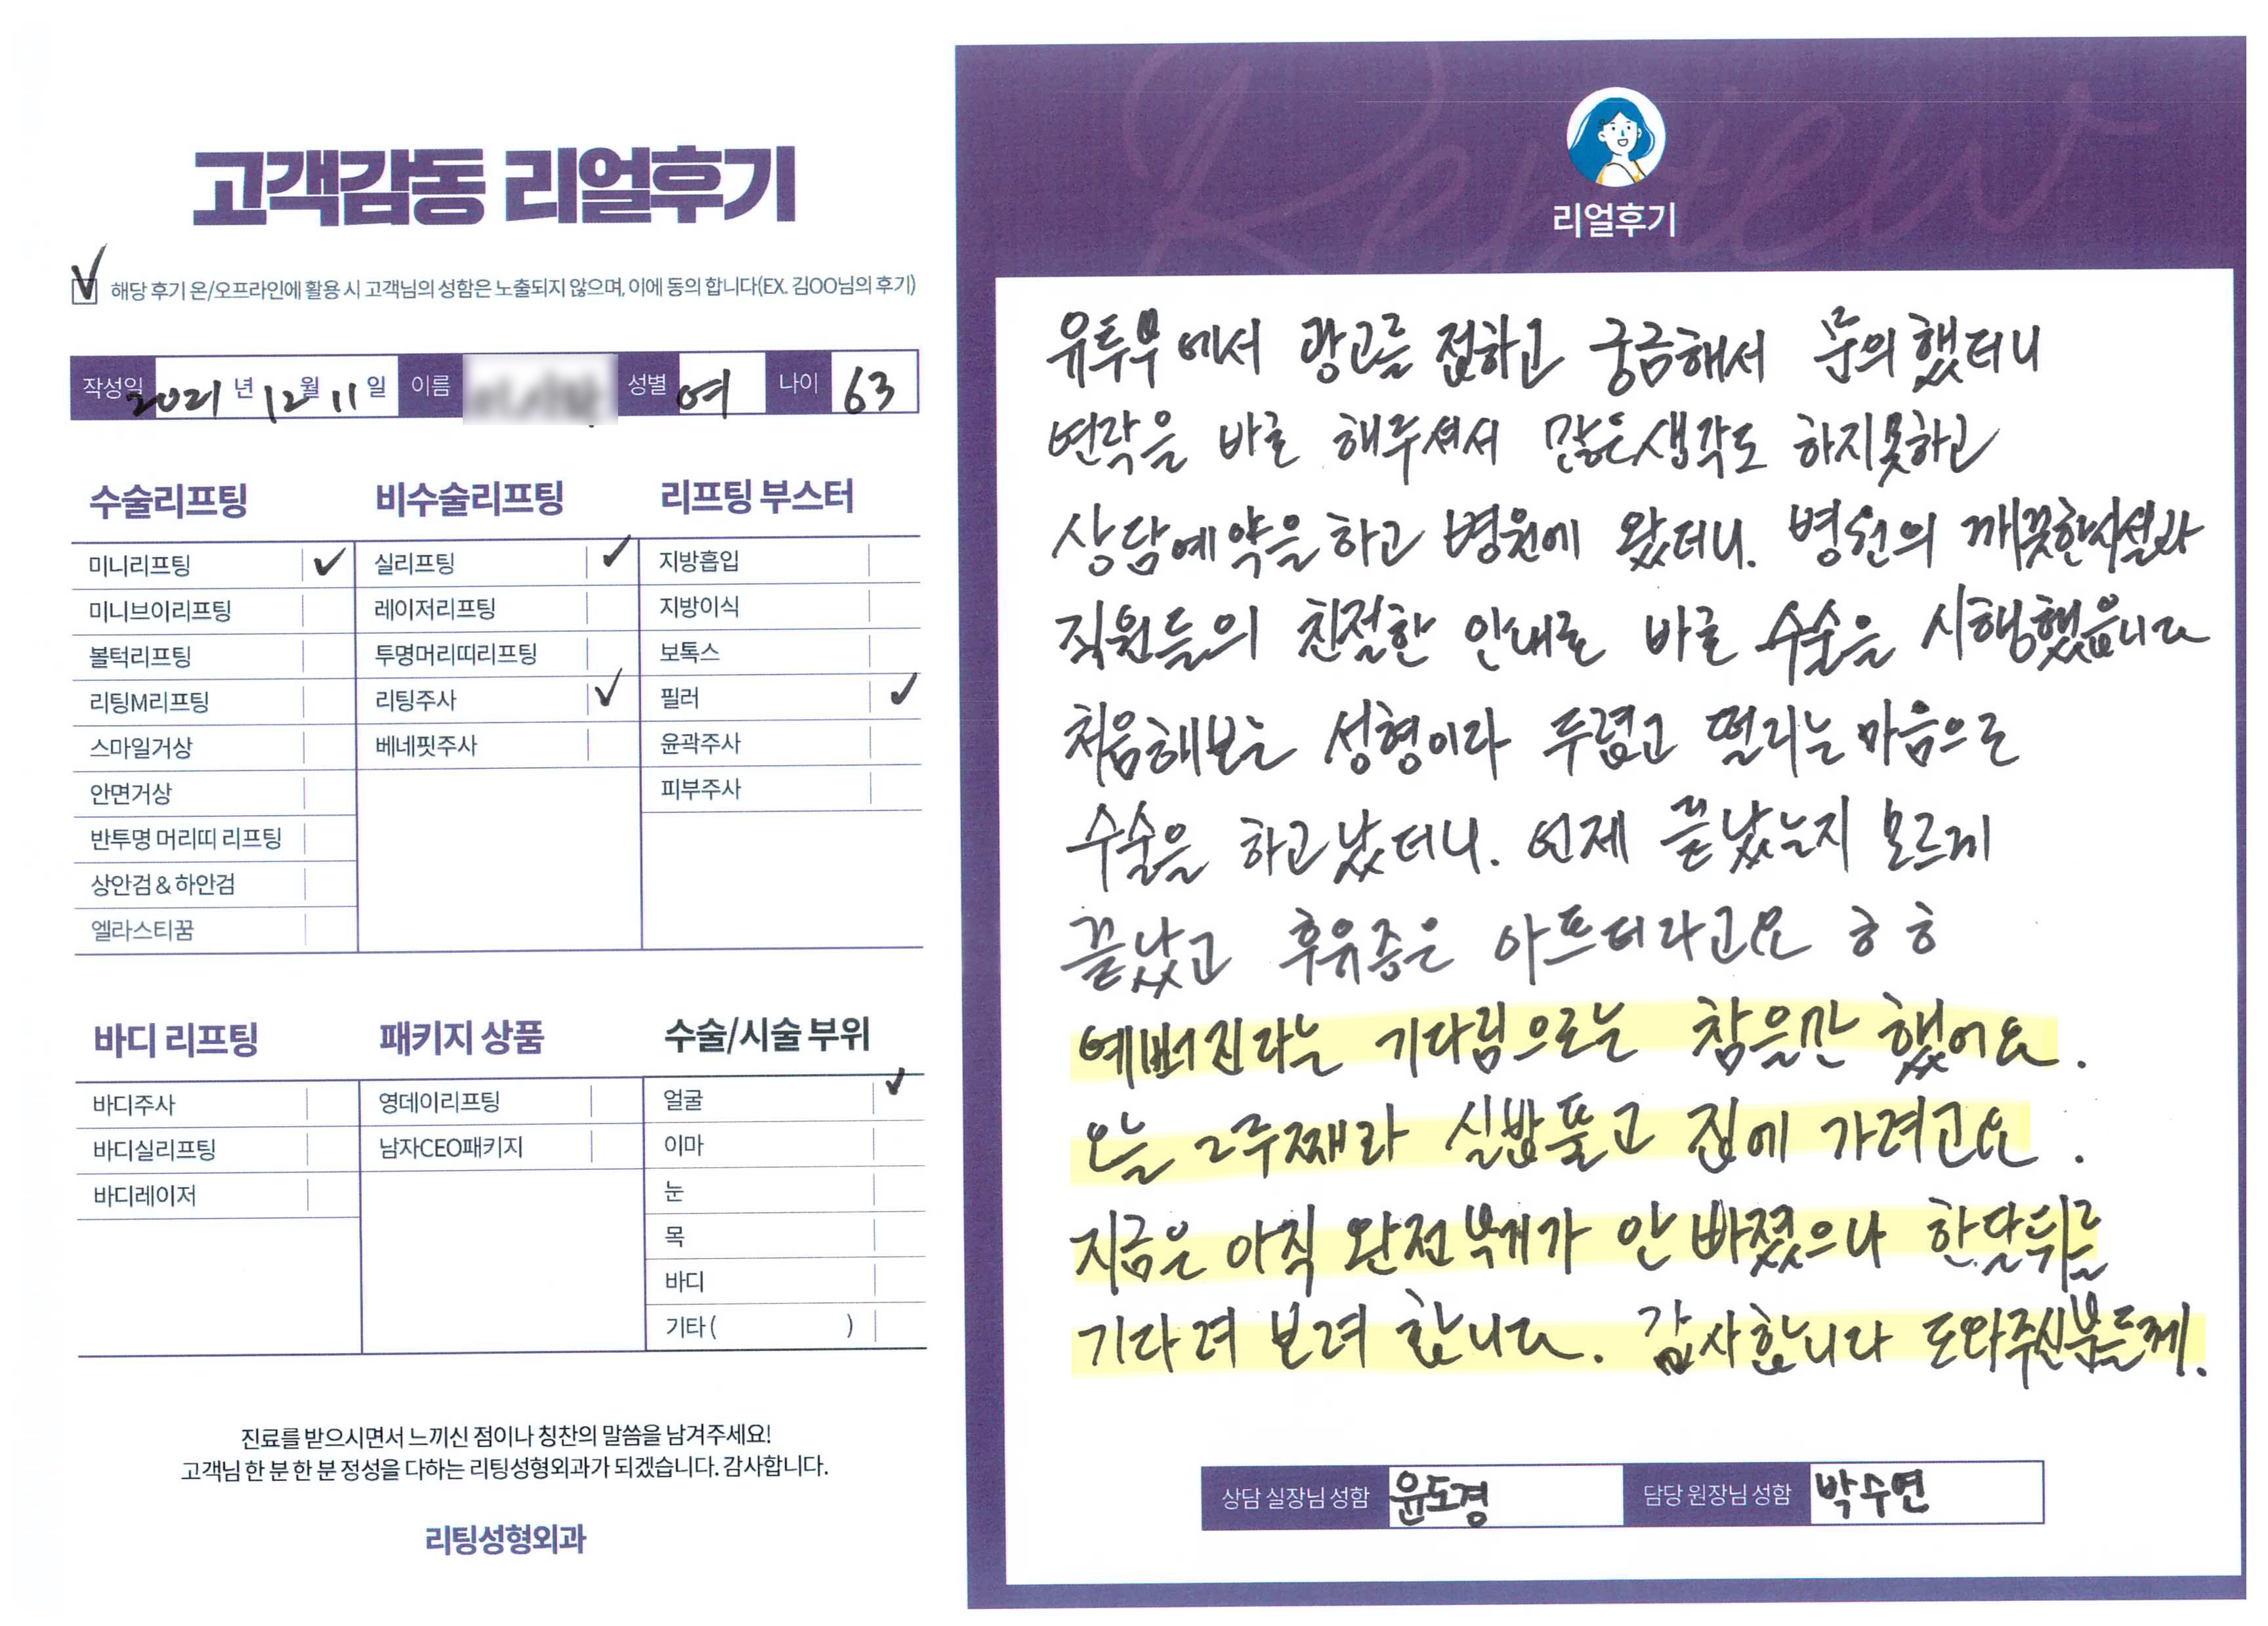 고객감동 리얼후기
✓ 해당 후기 온/오프라인에 활용 시 고객님의 성함은 노출되지 않으며, 이에 동의 합니다(EX. 김OO님의 후기)
작성일 2021 년 12 월 11 일 이름 성별 여 나이 63
수술리프팅
미니리프팅 ✓
미니브이리프팅
볼턱리프팅
리팅M리프팅
스마일거상
안면거상
반투명 머리띠 리프팅
상안검 & 하안검
엘라스티꿈
비수술리프팅
실리프팅 ✓
레이저리프팅
투명머리띠리프팅
리팅주사 ✓
베네핏주사
리프팅 부스터
지방흡입
지방이식
보톡스
필러 ✓
윤곽주사
피부주사
바디 리프팅
바디주사
바디실리프팅
바디레이저
패키지 상품
영데이리프팅
남자CEO패키지
수술/시술 부위
얼굴 ✓
이마
눈
목
바디
기타 ( )
진료를 받으시면서 느끼신 점이나 칭찬의 말씀을 남겨주세요!
고객님 한 분 한 분 정성을 다하는 리팅성형외과가 되겠습니다. 감사합니다.
리팅성형외과
Review
리얼후기
유투부에서 광고를 접하고 궁금해서 문의했더니
연락을 바로 해주셔서 많은생각도 하지못하고
상담예약을하고 병원에 왔더니. 병원의 깨끗한시설과
직원들의 친절한 안내로 바로 수술을 시행했읍니다
처음해보는 성형이라 두렵고 떨리는 마음으로
수술을 하고났더니. 언제 끝났는지 모르게
끝났고 후유증은 아프더라고요 ㅎㅎ
예뻐진라는 기다림으로는 참을만 했어요.
오늘 2주째라 실밥풀고 집에 가려고요.
지금은 아직 완전붓기가 안 빠졌으나 한달뒤를
기다려 보려 합니다. 감사합니다 도와주신분들께.
상담 실장님 성함 윤도경 담당 원장님 성함 박수연